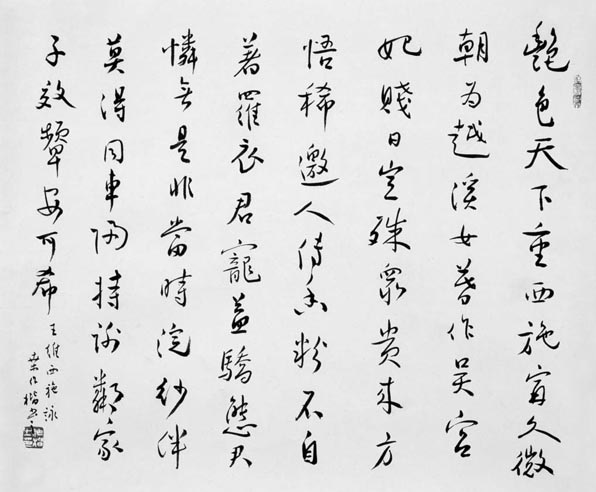 艷色天下重西施寧久微
朝為越溪女暮作吳宮
妃賤日豈殊衆貴來方
悟稀邀人傅香粉不自
著羅衣君寵益驕態君
憐無是非當時浣紗伴
莫得同車歸持謝鄰家
子效顰安可希
王維西施詠